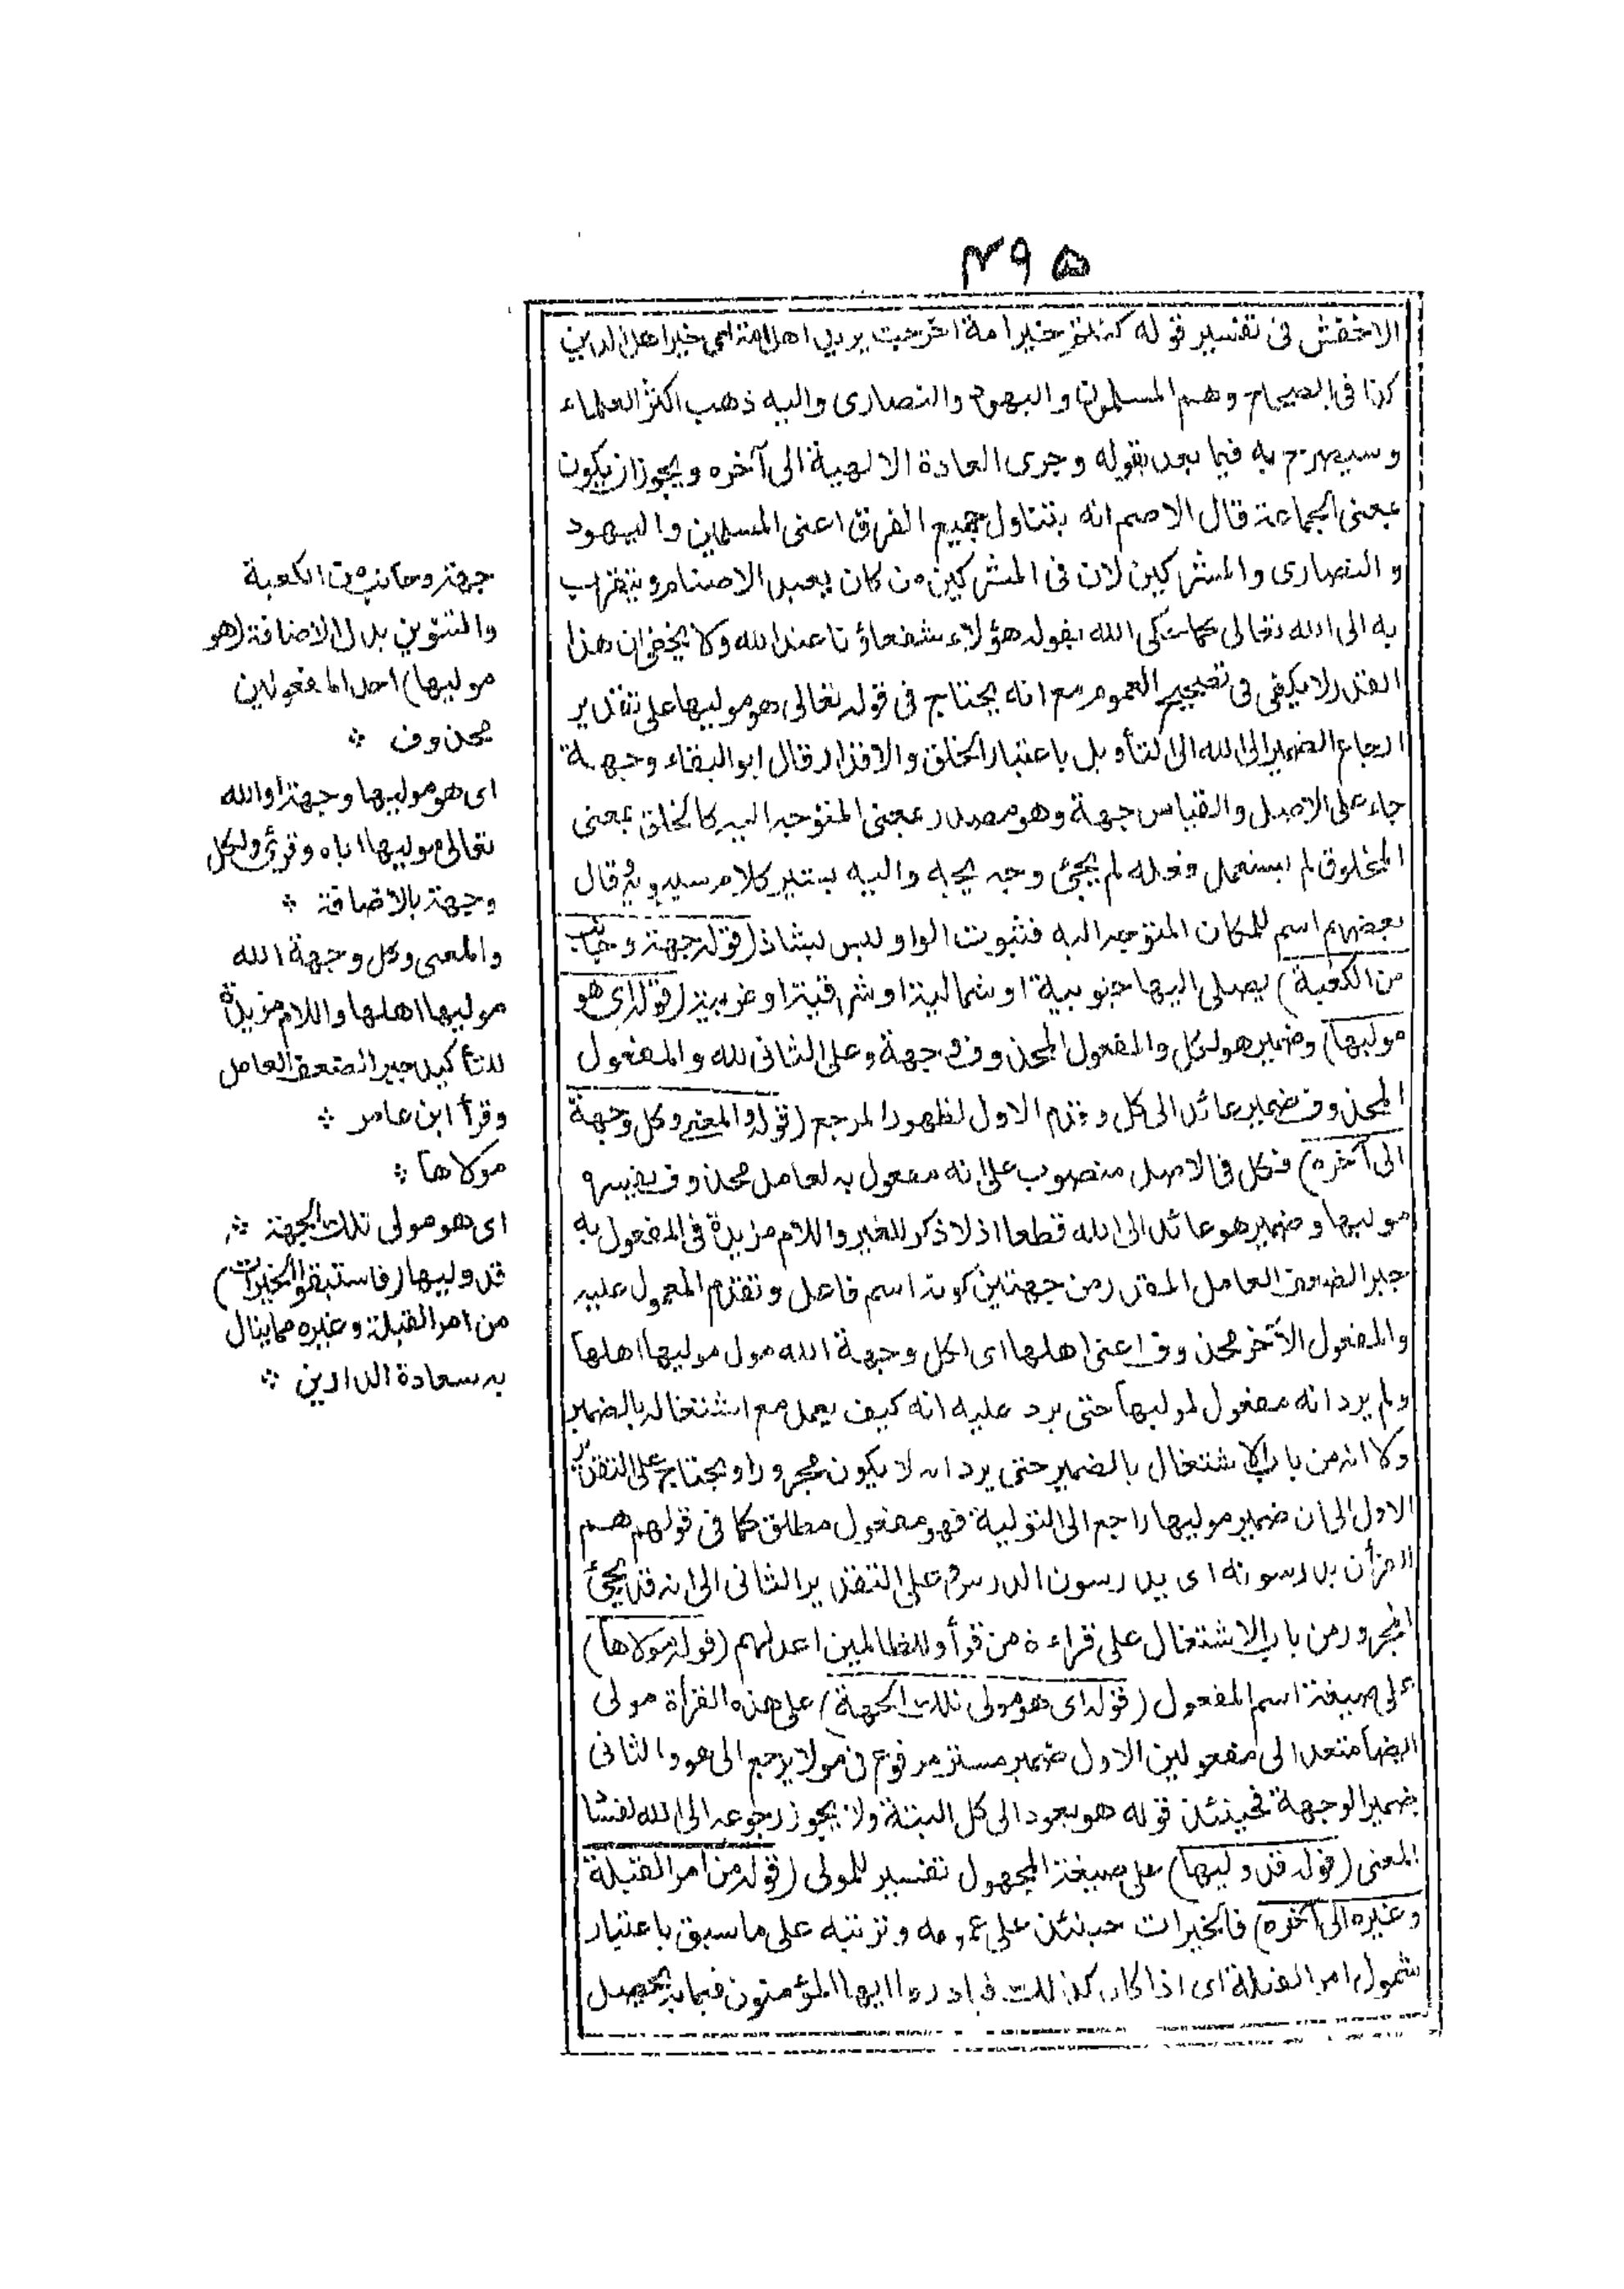 ٤٩٥
الاخفش فى تفسير قوله كنتم خير امة اخرجت يريد اهل امة اى خير اهل الدين
كذا فى الصحاح وهم المسلمون واليهود والنصارى واليه ذهب اكثر العلماء
وسيصرح به فيما بعد بقوله وجرى العادة الالهية الى آخره ويجوز ان يكون
بمعنى الجماعة قال الاصم انه يتناول جميع الفرق اعنى المسلمين واليهود
والنصارى والمشركين لان فى المشركين من كان يعبد الاصنام ويتقرب
به الى الله تعالى كما حكى الله بقوله هؤلاء شفعاؤنا عند الله ولا يخفى ان هذا
القدر لا يكفى فى تصحيح العموم مع انه يحتاج فى قوله تعالى هو موليها على تقدير
ارجاع الضمير الى الله الى التأويل باعتبار الخلق والاقدار قال ابو البقاء وجهة
جاء على الاصل والقياس جهة وهو مصدر بمعنى المتوجه اليه كالخلق بمعنى
المخلوق لم يستعمل فعله لم يجئ وجه يجه واليه يشير كلام سيبويه قال
بعضهم اسم للمكان المتوجه اليه فثبوت الواو ليس بشاذ (قوله جهة وجانب
من الكعبة) يصلى اليها جنوبية او شمالية او شرقية او غربية (قوله اى هو
موليها) وضمير هو لكل والمفعول المحذوف وجهة وعلى الثانى لله والمفعول
المحذوف ضمير عائد الى كل وقدم الاول لظهور المرجع (قوله والمعنى وكل وجهة
الى آخره) فكل فى الاصل منصوب على انه مفعول به لعامل محذوف يفسره
موليها وضمير هو عائد الى الله قطعا اذ لا ذكر للغير واللام مزيدة فى المفعول به
جبرا لضعف العامل المقدر من جهتين كونه اسم فاعل وتقدم المعمول عليه
والمفعول الآخر محذوف اعنى اهلها اى لكل وجهة الله مول موليها اهلها
ولم يرد انه مفعول لموليها حتى يرد عليه انه كيف يعمل مع اشتغاله بالضمير
ولا انه من باب الاشتغال بالضمير حتى يرد انه لا يكون مجرورا ويحتاج على التقدير
الاول الى ان ضمير موليها راجع الى التولية فهو مفعول مطلق كما فى قولهم هم
القرأن يدرسونه اى يدرسون الدرس وعلى التقدير الثانى الى انه قد يجئ
المجرور من باب الاشتغال على قراءة من قرأ وللظالمين اعد لهم (قوله مولاها)
على صيغة اسم المفعول (قوله اى هو مولى تلك الجهة) على هذه القرأة مولى
ايضا متعد الى مفعولين الاول ضمير مستتر مرفوع فى مولا يرجع الى هو والثانى
ضمير الوجهة فحينئذ قوله هو يعود الى كل البتة ولا يجوز رجوعه الى الله لفساد
المعنى (قوله قد وليها) على صيغة المجهول تفسير للمولى (قوله من امر القبلة
وغيره الى آخره) فالخيرات حينئذ على عمومه وترتبه على ما سبق باعتبار
شمول امر القبلة اى اذا كان كذلك فبادروا ايها المؤمنون فيما به يحصل
جهة وجانب من الكعبة
والتنوين بدل الاضافة (هو
موليها) احد المفعولين
محذوف ⁘
اى هو موليها وجهة او الله
تعالى موليها اياه وقرئ ولكل
وجهة بالاضافة ⁘
والمعنى وكل وجهة الله
موليها اهلها واللام مزيدة
للتأكيد جبرا لضعف العامل
وقرأ ابن عامر ⁘
مولاها ⁘
اى هو مولى تلك الجهة ⁘
قد وليها (فاستبقوا الخيرات)
من امر القبلة وغيره مما ينال
به سعادة الدارين ⁘